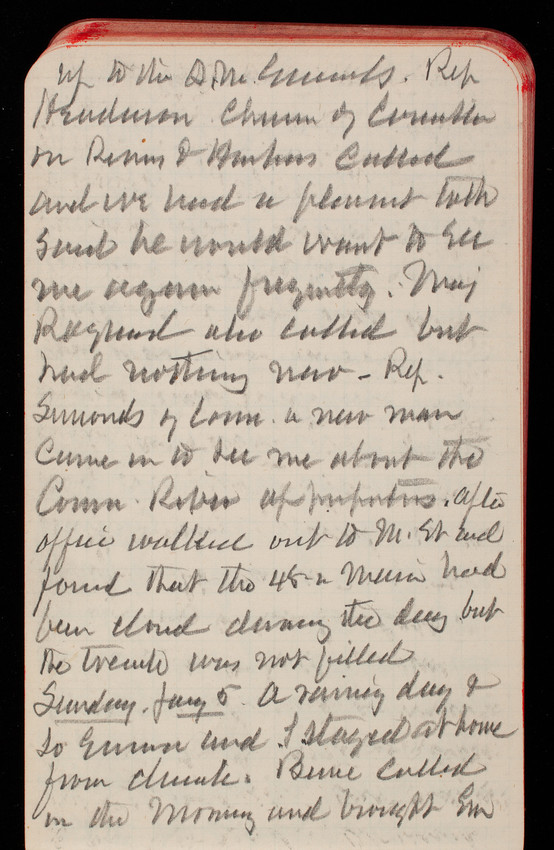 up to the Q.M. Generals. Rep
Henderson Chairm of Committee
on Rivers & Harbors Called
and we had a pleasant talk
Said he would want to See
me again frequently. Maj
Raymond also called but
had nothing new - Rep.
Simonds of Conn. a new man
Came in to see me about the
Conn. River appropriations. After
office walked out to M. St and
found that the 48 in Main had
been closed during the day but
the trench was not filled
Sunday. Jany 5. A rainy day &
So Emma and I stayed at home
from church. Bernie called
in the Morning and brought Em